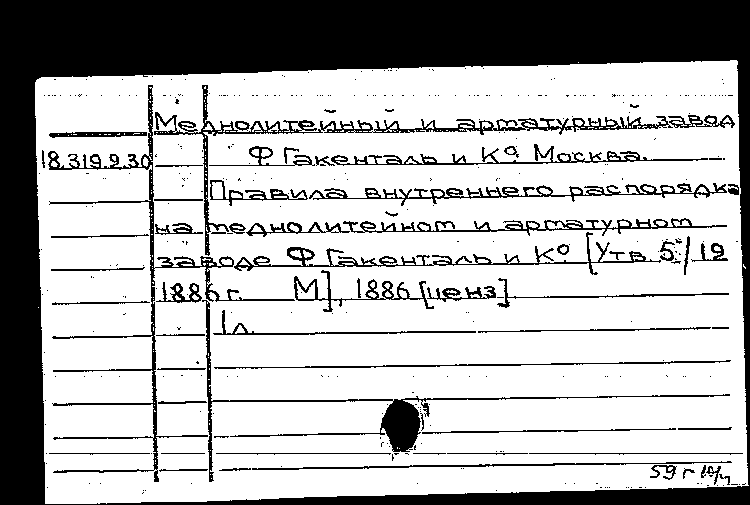 Меднолитейный и арматурный завод
18.319.9.30 Ф. Гакенталь и Ко. Москва.
Правила внутреннего распорядка
на меднолитейном и арматурном
заводе Ф. Гакенталь и Ко. [Утв. 5/19
1886 г. М], 1886 [ценз].
1 л.
59 г